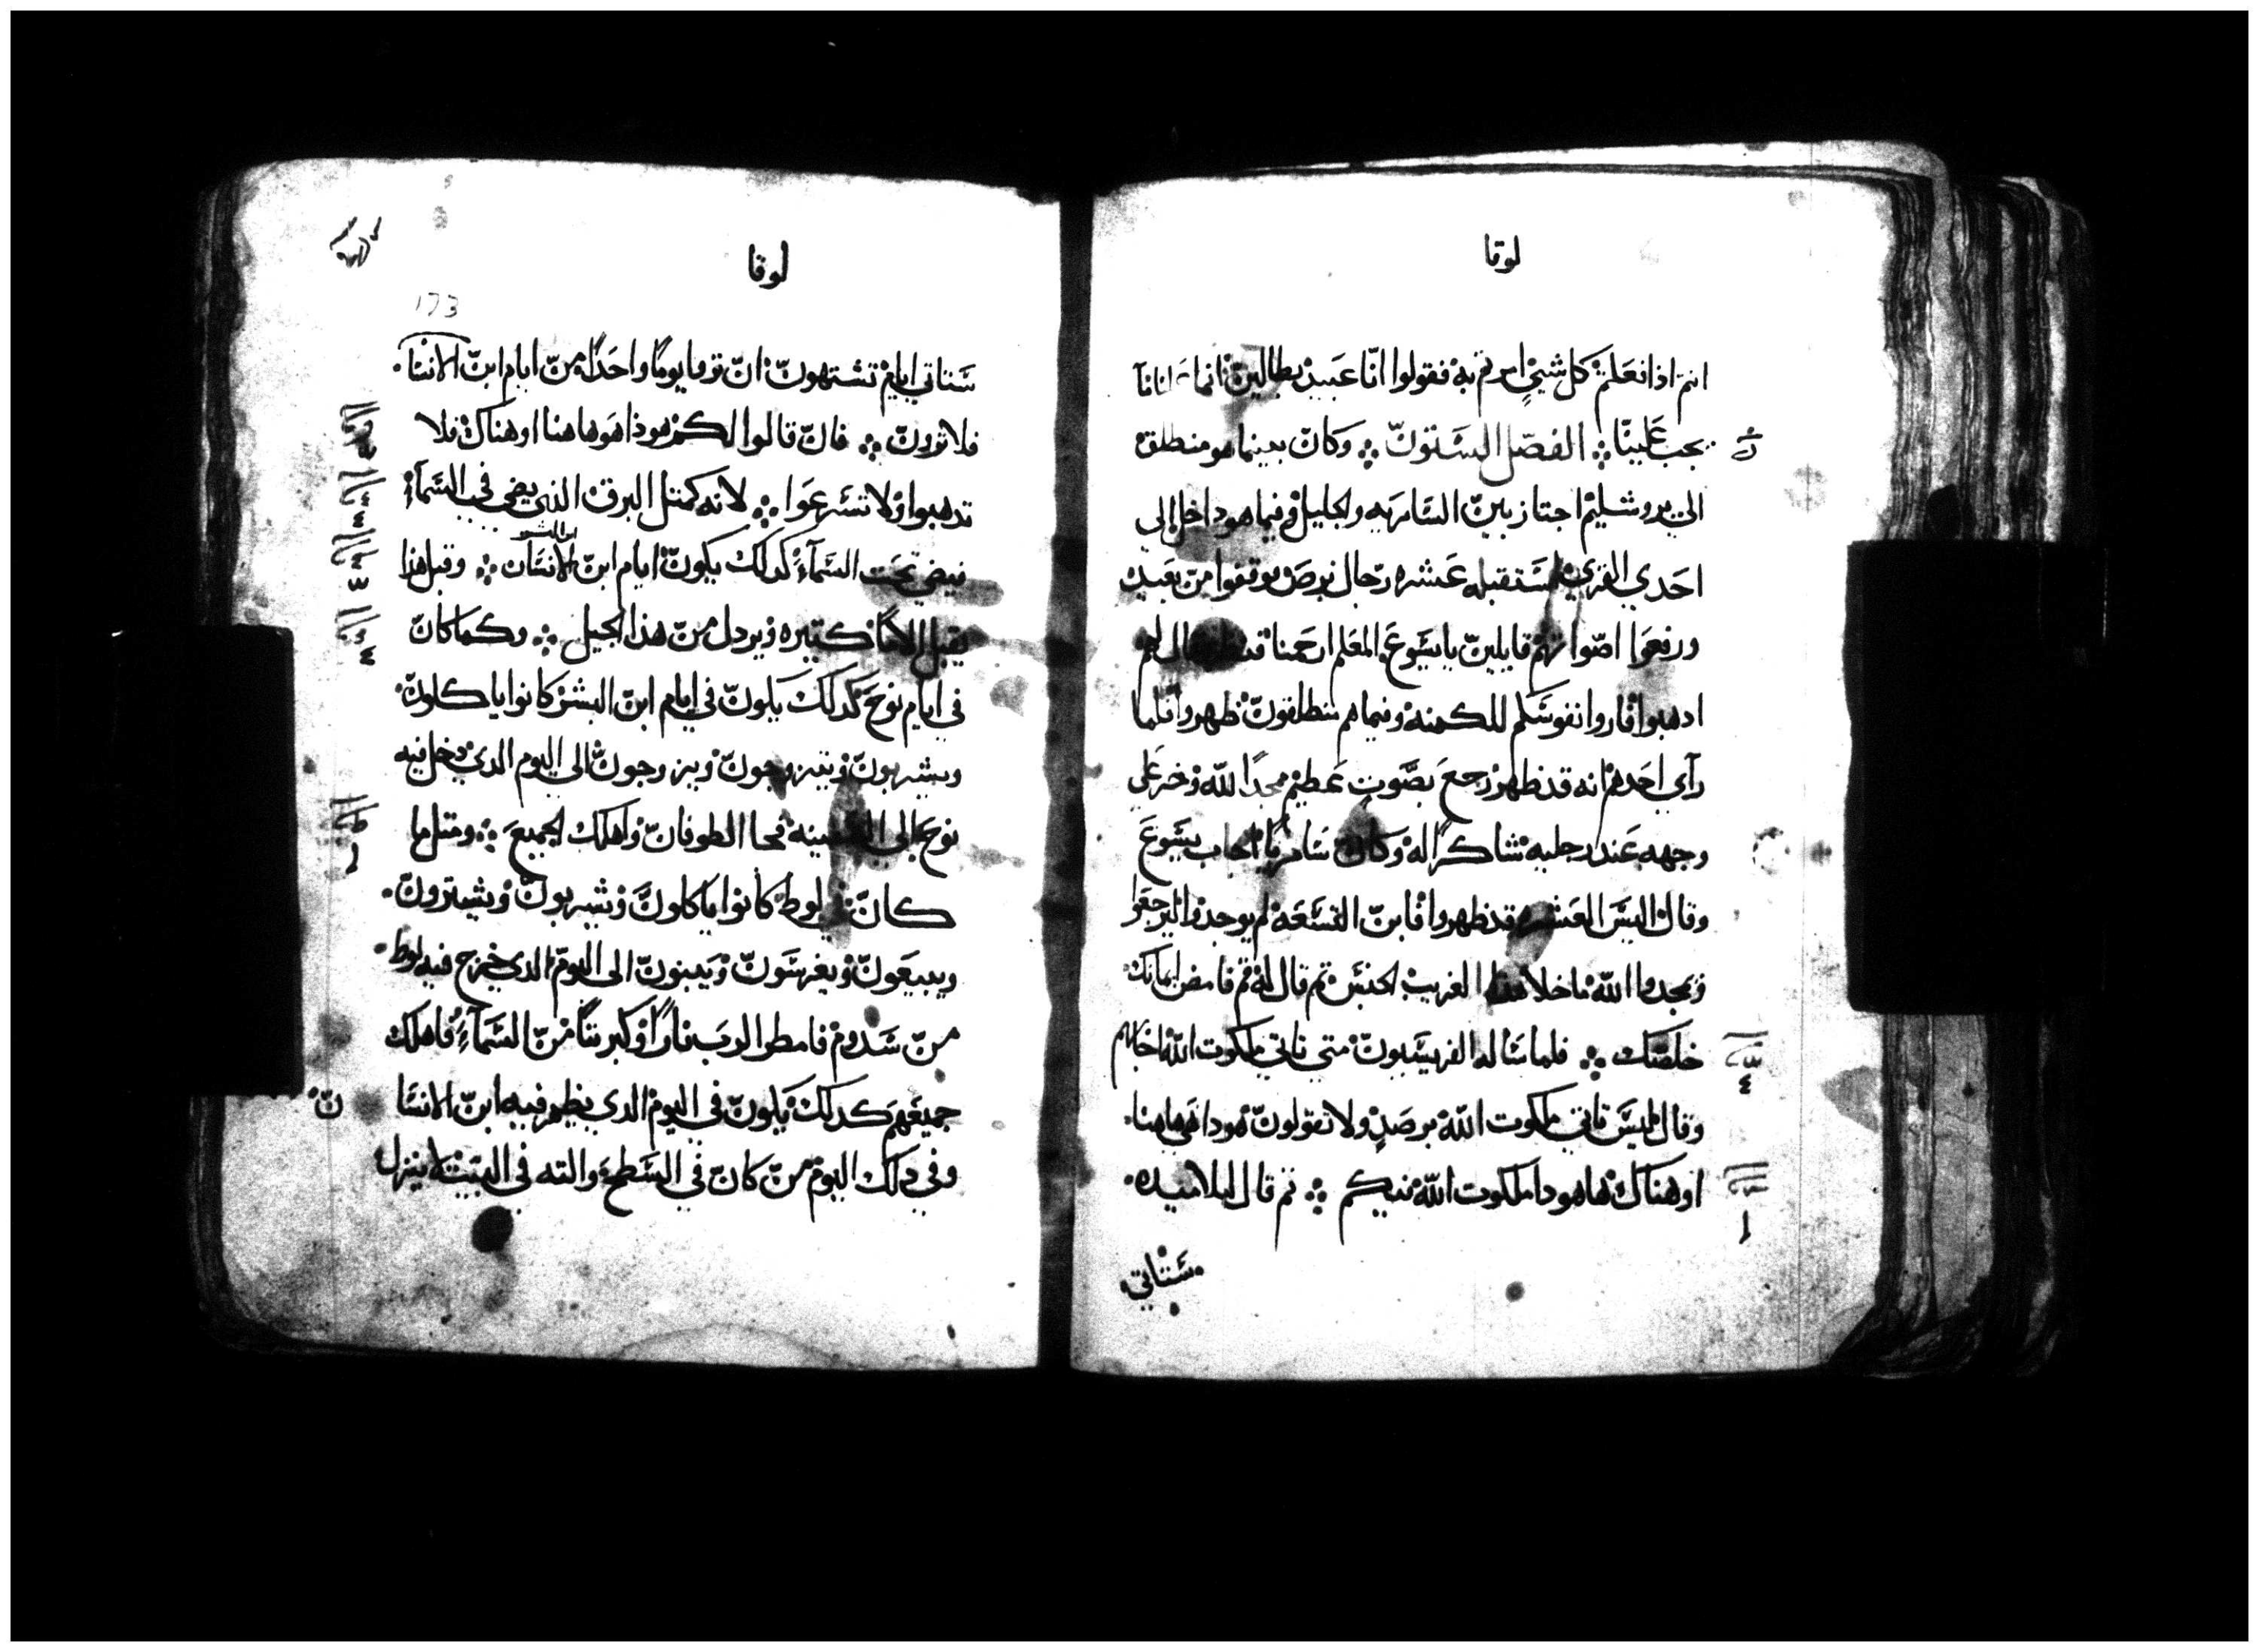 لوقا
انتم اذا فعلتم كل شيٍ امرتم به فقولوا انّا عبيد بطالين انما
يجب علينا ⁘ الفصل الستون ⁘ وكان بينما هو منطلق
الي يروشليم اجتاز بين السامريه والجليل وفيما هو داخل الي
احدي القري استقبله عشره رجال برص فوقفوا من بعيد
ورفعوا اصواتهم قايلين يا يسوع المعلم ارحمنا فنظر فقال لهم
ادهبوا فاروا نفوسكم للكهنه وفيما هم منطلقون طهروا فلما
رآي احدهم انه قد طهر رجع بصوت عطيم ممجدًا لله وخر علي
وجهه عند رجليه شاكرًا له وكان سامريًا اجاب يسوع
وقال اليس العشره قد طهروا فاين التسعه لم يوجدوا ليرجعوا
ويمجدوا الله ما خلا هذا الغريب الجنس تم قال له قم فامض ايمانك
خلصك ⁘ فلما ساله الفريسيون متي تاتي ملكوت الله اجابهم
وقال ليس تاتي ملكوت الله برصدٍ ولا تقولون هودا هي هاهنا
او هناك ها هودا ملكوت الله فيكم ⁘ تم قال لتلاميده
ستاتي
لوقا
173
ستاتي ايام تشتهون ان تروا يومًا واحدًا من ايام ابن الانسا
فلا ترون ⁘ فان قالوا لكم هوذا هو هاهنا او هناك فلا
تدهبوا ولا تسرعوا ⁘ لانه كمتل البرق الذي يضي في السمآء
فيضي تحت السمآء كدلك يكون ايام ابن الانسان ⁘ وقبل هذا
يقبل الامًا كتيره ويردل من هذا الجيل ⁘ وكما كان
في ايام نوح كدلك يكون في ايام ابن البشر كانوا ياكلون
ويشربون ويتزوجون ويزوجون الي اليوم الدي دخل فيه
نوح الي السفينه فجا الطوفان واهلك الجميع ⁘ ومتل ما
كان في لوط كانوا ياكلون ويشربون ويشترون
ويبيعون ويغرسون ويبنون الى اليوم الدي خرج فيه لوط
من سدوم فامطر الرب نارًا وكبريتًا من السمآء فاهلك
جميعهم كدلك يكون في اليوم الدي يظهر فيه ابن الانسا ن
وفي دلك اليوم من كان في السطح والته في البيت لا ينزل